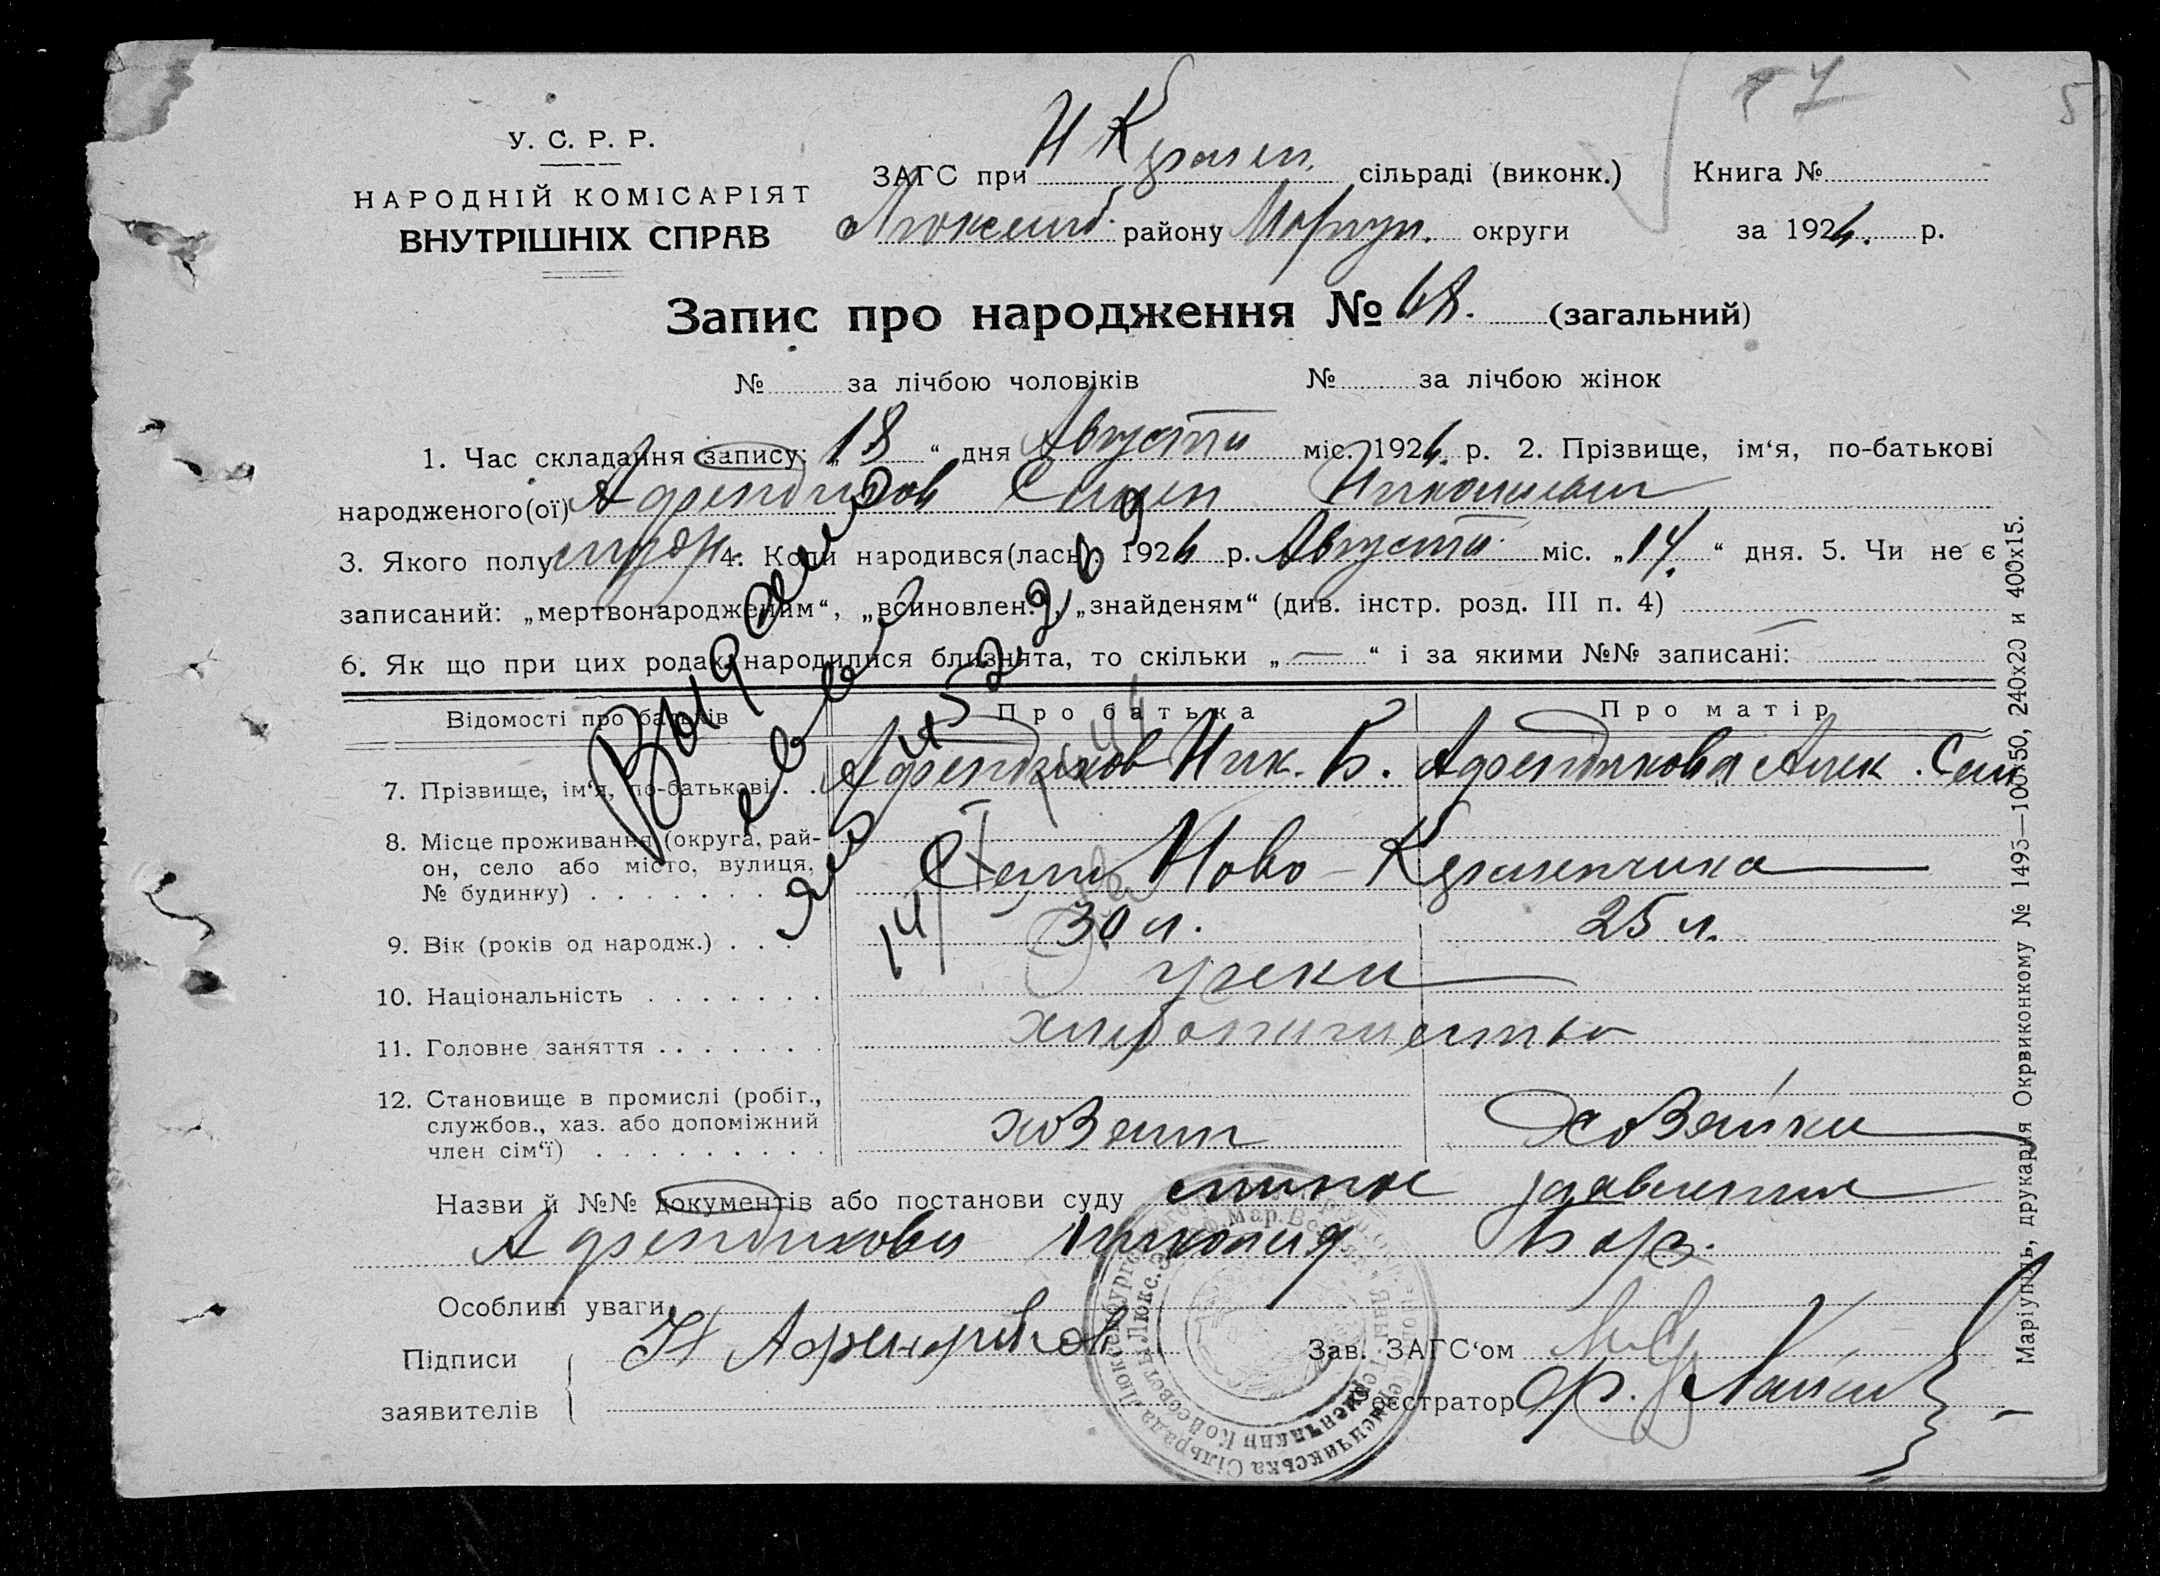 У. С. Р. Р.
НАРОДНІЙ КОМІСАРІЯТ
ВНУТРІШНІХ СПРАВ
ЗАГС при Н Кремен. сільраді (виконк.)
Люксемб. району Мариуп. округи
Книга №
за 1926. р.
Запис про народження № 68. (загальний)
№ за лічбою чоловіків № за лічбою жінок
1. Час складання запису: „18“ дня Августа міс. 1926. р. 2. Прізвище, ім‘я, по-батькові
народженого(ої) Афендиков Николаев
3. Якого полу 4. Коли народився(лась). 1926 р. Августа міс. „14.“ дня. 5. Чи не є
записаний: „мертвонародженим“, „всиновлен.“, „знайденям“ (див. інстр. розд. III п. 4)
6. Як що при цих родах народилися близнята, то скільки „—“ і за якими №№ записані:
Відомості про батьків Про батька Про матір
7. Прізвище, ім‘я, по-батькові . . Афендиков Ник. Б. Афендикова Алек. Сем
8. Місце проживання (округа, рай-
он, село або місто, вулиця,
№ будинку) . . . . . . . Село Ново-Кременчик
9. Вік (років од народж.) . . . 30 л. 25 л.
10. Національність . . . . . . . греки
11. Головне заняття . . . . . . хлебопашество
12. Становище в промислі (робіт.,
службов., хаз. або допоміжний
член сім‘ї) . . . . . . . . . хозяин хозяйка
Назви й №№ документів або постанови суду личное заявление
Афендикова Николая Бор.
Особливі уваги
Підписи
заявителів
Н Афендиков
Зав. ЗАГС‘ом
Реєстратор
Маріупіль, друкарня Окрвиконкому № 1495—100х50, 240х20 и 400х15.